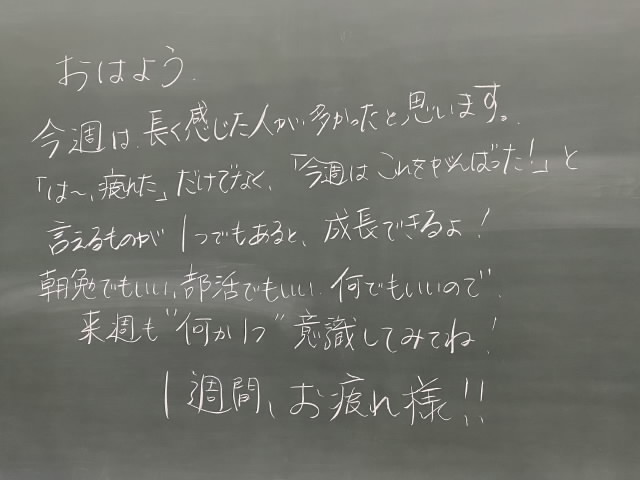 おはよう.
今週は、長く感じた人が多かったと思います。
「は〜、疲れた」だけでなく、「今週はこれをがんばった!」と
言えるものが1つでもあると、成長できるよ!
朝勉でもいい、部活でもいい、何でもいいので、
来週も"何か1つ"意識してみてね!
1週間、お疲れ様!!